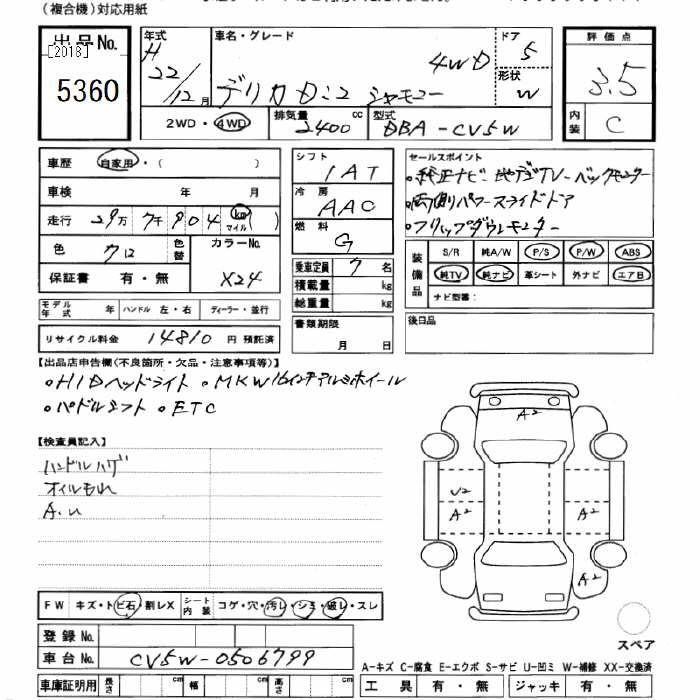 (複合機)対応用紙
出品No.
[2013]
5360
年式 H 22/12月
車名・グレード 4WD
デリカ D:2 シャモニー
ドア 5
形状 W
2WD・4WD
排気量 2400 cc
型式 DBA-CV5W
評価点
3.5
内装 C
車歴 自家用・( )
車検 年 月
走行 29万 7千 904 km マイル ( )
色 クロ 色替
カラーNo. X24
保証書 有・無
シフト IAT
冷房 AAC
燃料 G
乗車定員 7 名
積載量 kg
総重量 kg
セールスポイント
・純正ナビ 地デジTV バックモニター
・両側パワースライドドア
・フリップダウンモニター
装備品 S/R 純A/W P/S P/W ABS
純TV 純ナビ 革シート 外ナビ エアB
ナビ型番:
モデル年式 年 ハンドル 左・右 ディーラー・並行
リサイクル料金 14810 円 預託済
書類期限
月 日
後日品
【出品店申告欄(不良箇所・欠品・注意事項等)】
・HIDヘッドライト ・MKW16インチアルミホイール
・パドルシフト ・ETC
【検査員記入】
ハンドルハゲ
オイルもれ
A.u
A2
U2
A2
A2
A2
FW キズ・トビ石・割レX
シート内装 コゲ・穴・汚レ・シミ・破レ・スレ
登録No.
車台No. CV5W-0506799
スペア
A-キズ C-腐食 E-エクボ S-サビ U-凹ミ W-補修 XX-交換済
車庫証明用 長さ cm 幅 cm 高さ cm
工具 有・無 ジャッキ 有・無